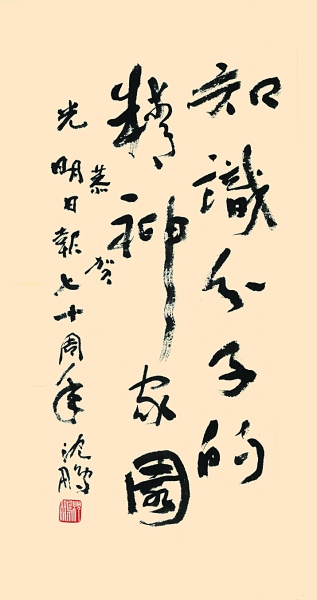 知識分子的
精神家園
恭賀
光明日報七十周年
沈鵬